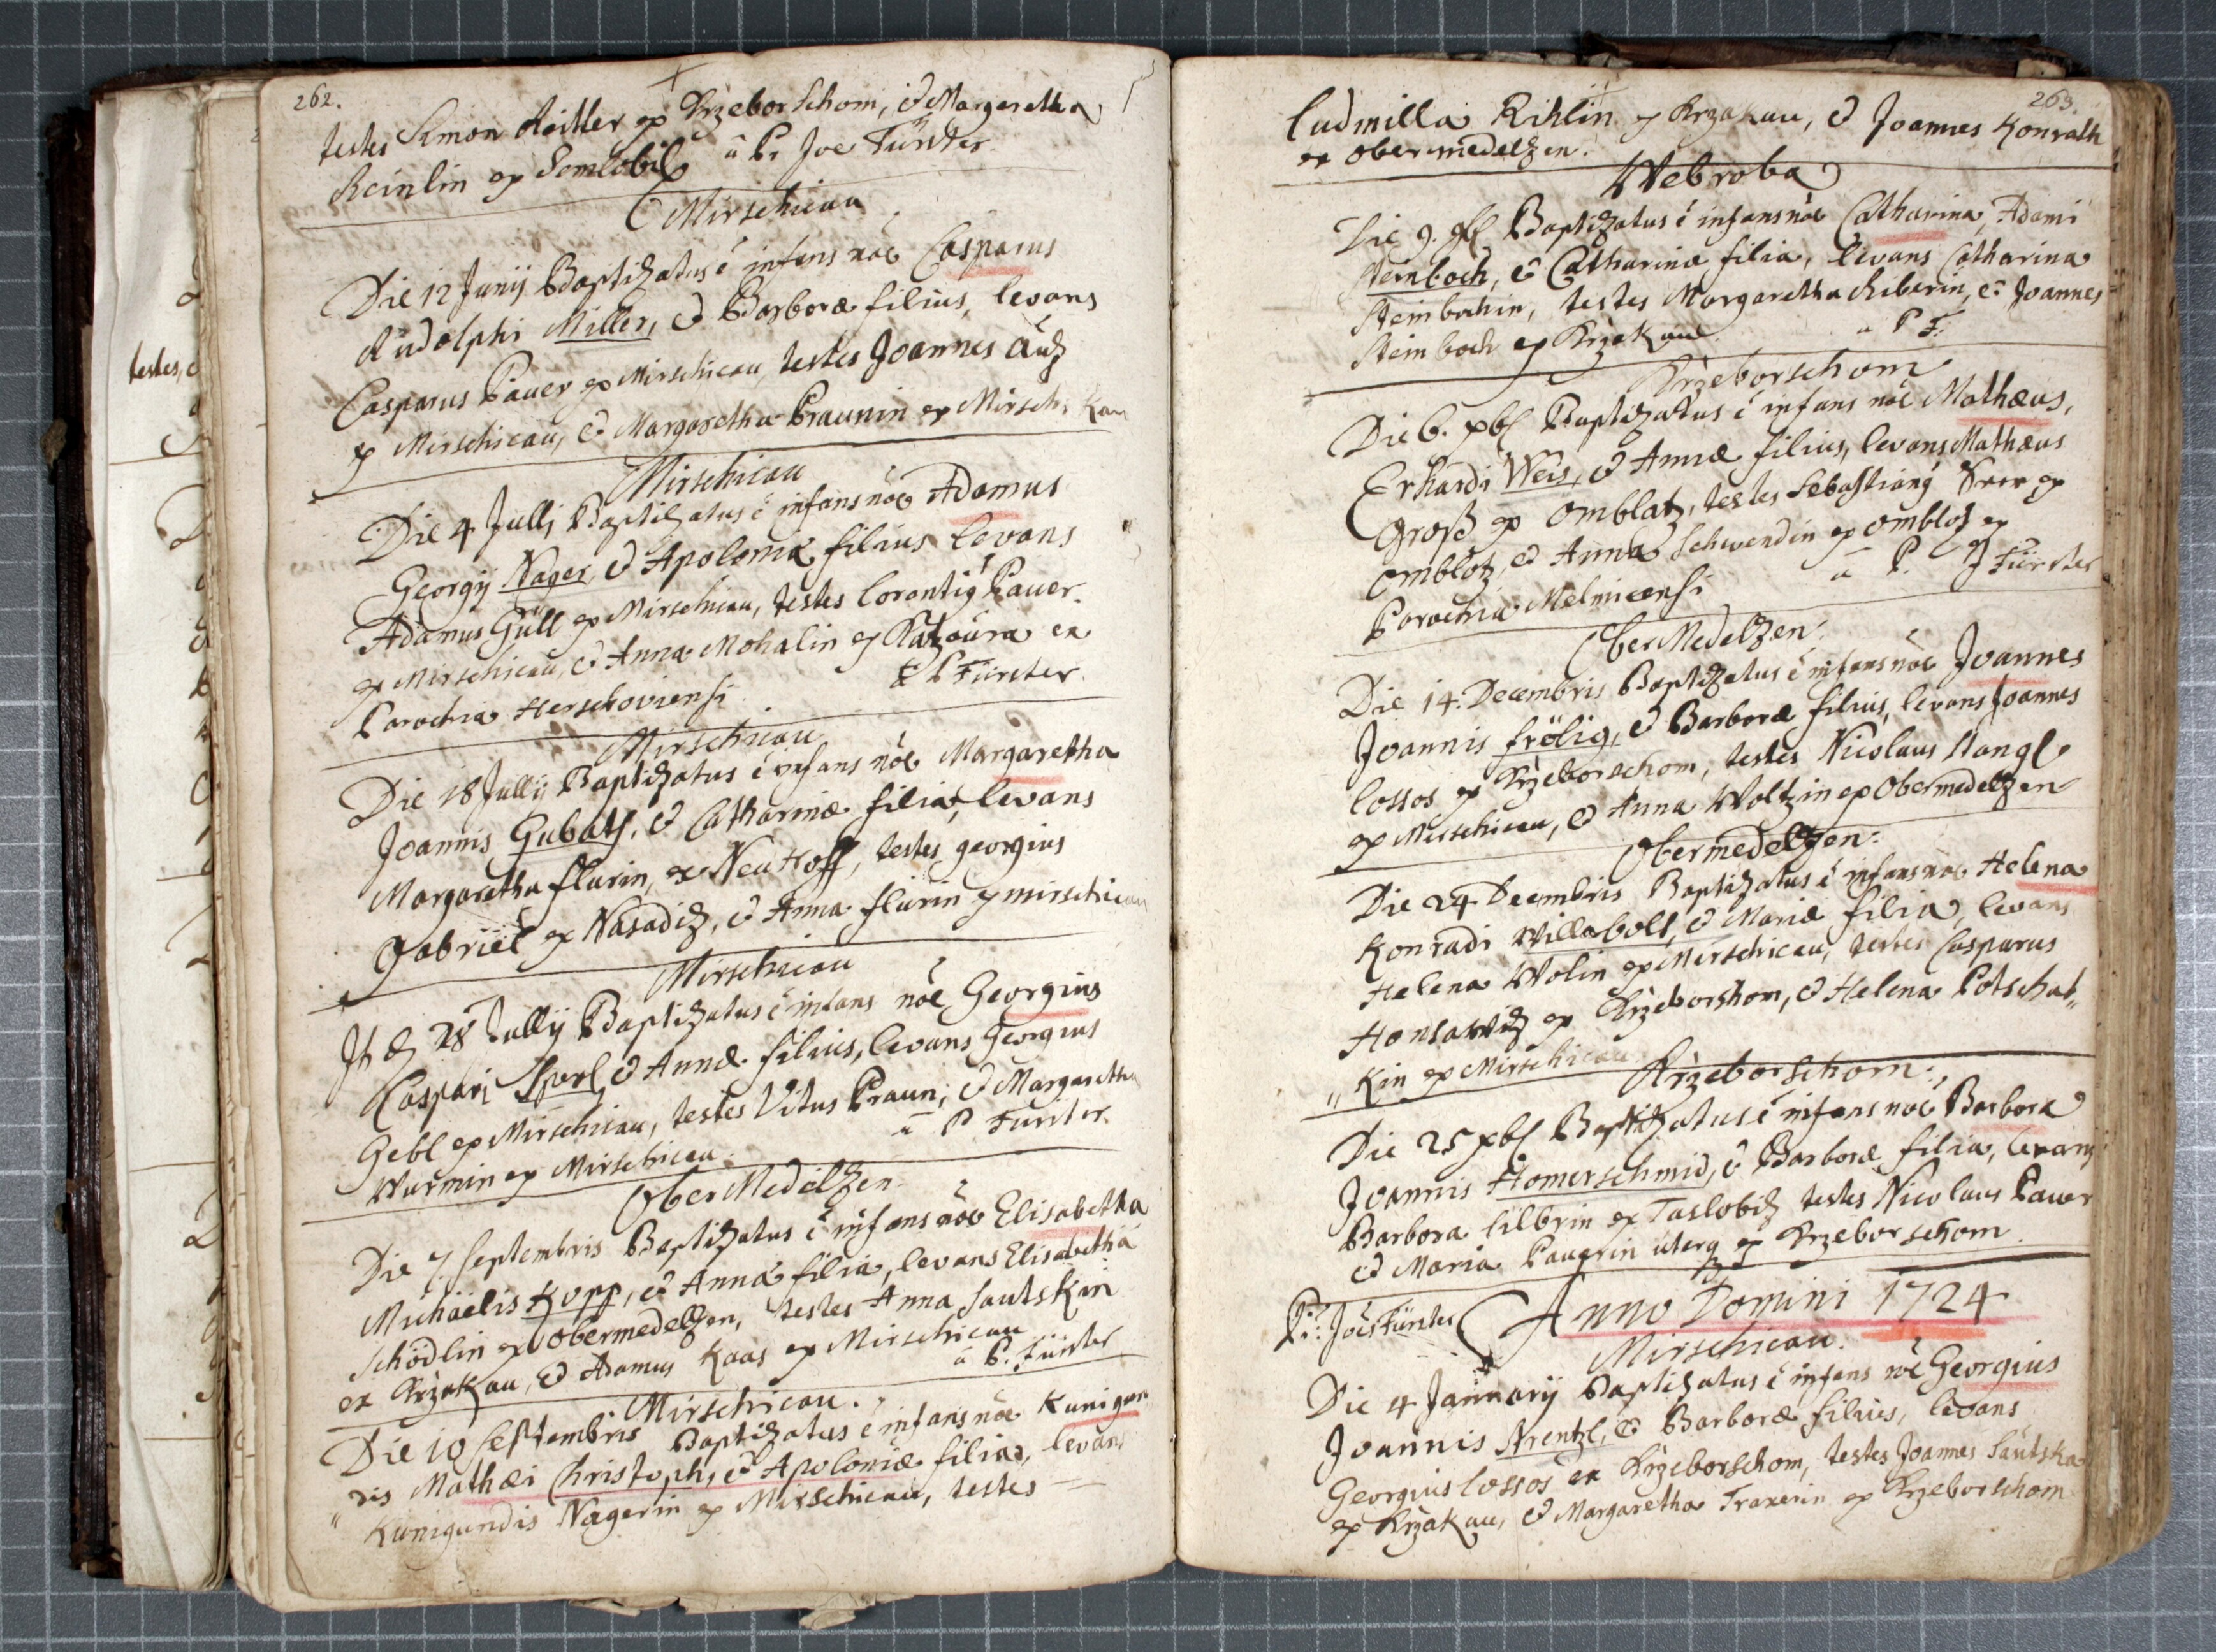 262.
testes Simon Reitter ex Krzeborschom, & Margaretha
Reinlin ex Semlobil à P. Joe Fürster
Mirschicau
Die 12 Junij Baptizatus ē infans nōe Casparus
Rudolphi Miller, & Barboræ filius, levans
Casparus Pauer ex Mirschicau, testes Joannes
ex Mirschicau, & Margaretha Praunin ex Mirschi Kau
Mirschicau
Die 4 Julij Baptizatus ē infans nōe Adamus
Georgij Nager, & Apoloniæ filius levans
Adamus Güll ex Mirschicau, testes Lorentig Pauer
ex Mirschicau, & Anna Mohalin ex Katzaura ex
Parochia Herschoviensi à P Fürster.
Mirschicau
Die 18 Julij Baptizatus ē infans nōe Margaretha
Joannis Gubatsch, & Catharinæ filia, levans
Margaretha flurin, ex Neu Hoff, testes georgius
Gabriel ex Nasadiz, & Anna flurin ex mirschicau
Mirschicau
28 Julij Baptizatus ē infans nōe Georgius
Caspari Sperl & Annæ filius, levans Georgius
Gebl ex Mirschicau, testes Vitus Praun, & Margaretha
Wurmin ex Mirschicau. à P Fürster.
Ober Medelzen
Die 7 Septembris Baptizatus ē infans nōe Elisabetha
Michaelis Kopp, & Anna filia, levans Elisabetha
Schödlin ex Obermedelzen, testes Anna Sautskin
ex Krzakau, & Adamus Kaas ex Mirschicau à P. Fürster
Mirschicau.
Die 10 Septembris Baptizatus ē infans nōe Kunigun
"dis Mathæi Christoph, & Apoloniæ filia, levans
Kunigundis Nagerin ex Mirschicau, testes
testes,
263.
Ludmilla Rihlin ex Krzakau, & Joannes Konrath
ex Obermedelzen.
Webroba
Die 9. 9b Baptizatus ē infans nōe Catharina, Adami
Steinboch, & Catharinæ filia, levans Catharina
Steinbochin, testes Margaretha Riberin, & Joannes
Steinboch ex Krzakau. à P F:
Krzeborschom
Die 6. xb Baptizatus ē infans nōe Mathæus,
Erhardi Weis, & Annæ filius, levans Mathæus
Groß ex Omblatz, testes Sebastiang ex
Omblotz, & Anna Schwendin ex Omblotz ex
Parochia Melmicensi à P. J Fürster
Ober Medelzen
Die 14. Decembris Baptizatus ē infans nōe Joannes
Joannis frölig, & Barboræ filius, levans Joannes
Lossos ex Krzeborschom, testes Nicolaus Stangl
ex Mirschicau, & Anna Woltzin ex Obermedelzen
Obermedelzen:
Die 24 Decembris Baptizatus ē infans nōe Helena
Konradi Willabolt, & Mariæ filia, levans
Helena Wolin ex Mirschicau, testes Casparus
Honsawiz ex Krzeborshom, & Helena Potschat"
"kin ex Mirschicau
Krzeborschom.
Die 25 xb Baptizatus ē infans nōe Barbora
Joannis Homerschmid, & Barboræ filia, levans
Barbora Silbrin ex Taslobiz testes Nicolaus Pauer
& Maria Pauerin uterq ex Krzeborschom.
P: Joēs Fürster Anno Domini 1724
Mirschicau.
Die 4 Januarij Baptizatus ē infans nōe Georgius
Joannis Arentzl, & Barboræ filius, levans
Georgius Lossos ex Krzeborschom, testes Joannes Sautska
ex Krzakau, & Margaretha Traxerin ex Krzeborschom